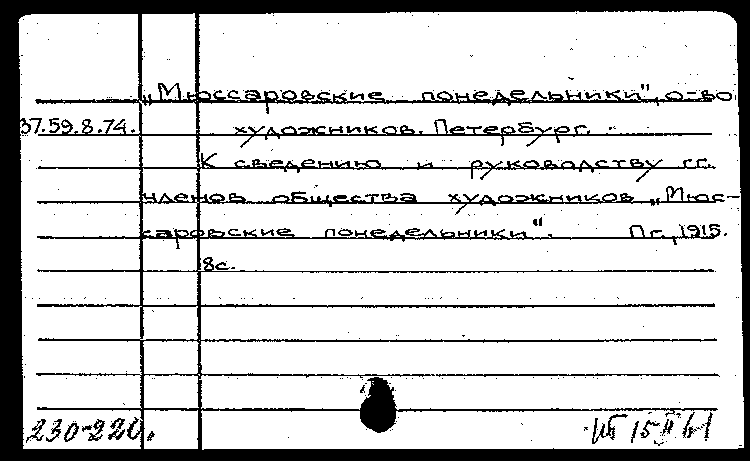 „Мюссаровские понедельники", о-во
37.59.8.74. художников. Петербург.
К сведению и руководству г.г.
членов общества художников „Мюс-
саровские понедельники". Пг., 1915.
8с.
230-220.
15 II 61